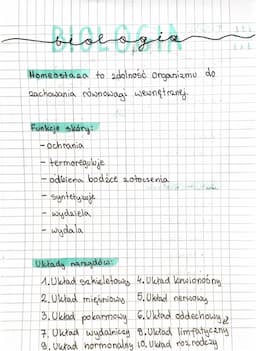 biologia
Homeostaza to zdolność organizmu do
zachowania równowagi wewnętrznej.
Funkcje skóry:
- ochrania
- termoreguluje
- odbiera bodźce z otoczenia
- syntetyzuje
- wydziela
- wydala
Układy narządów:
1. Układ szkieletowy 4. Układ krwionośny
2. Układ mięśniowy 5. Układ nerwowy
3. Układ pokarmowy 6. Układ oddechowy
7. Układ wydalniczy 8. Układ limfatyczny
9. Układ hormonalny 10. Układ rozrodczy